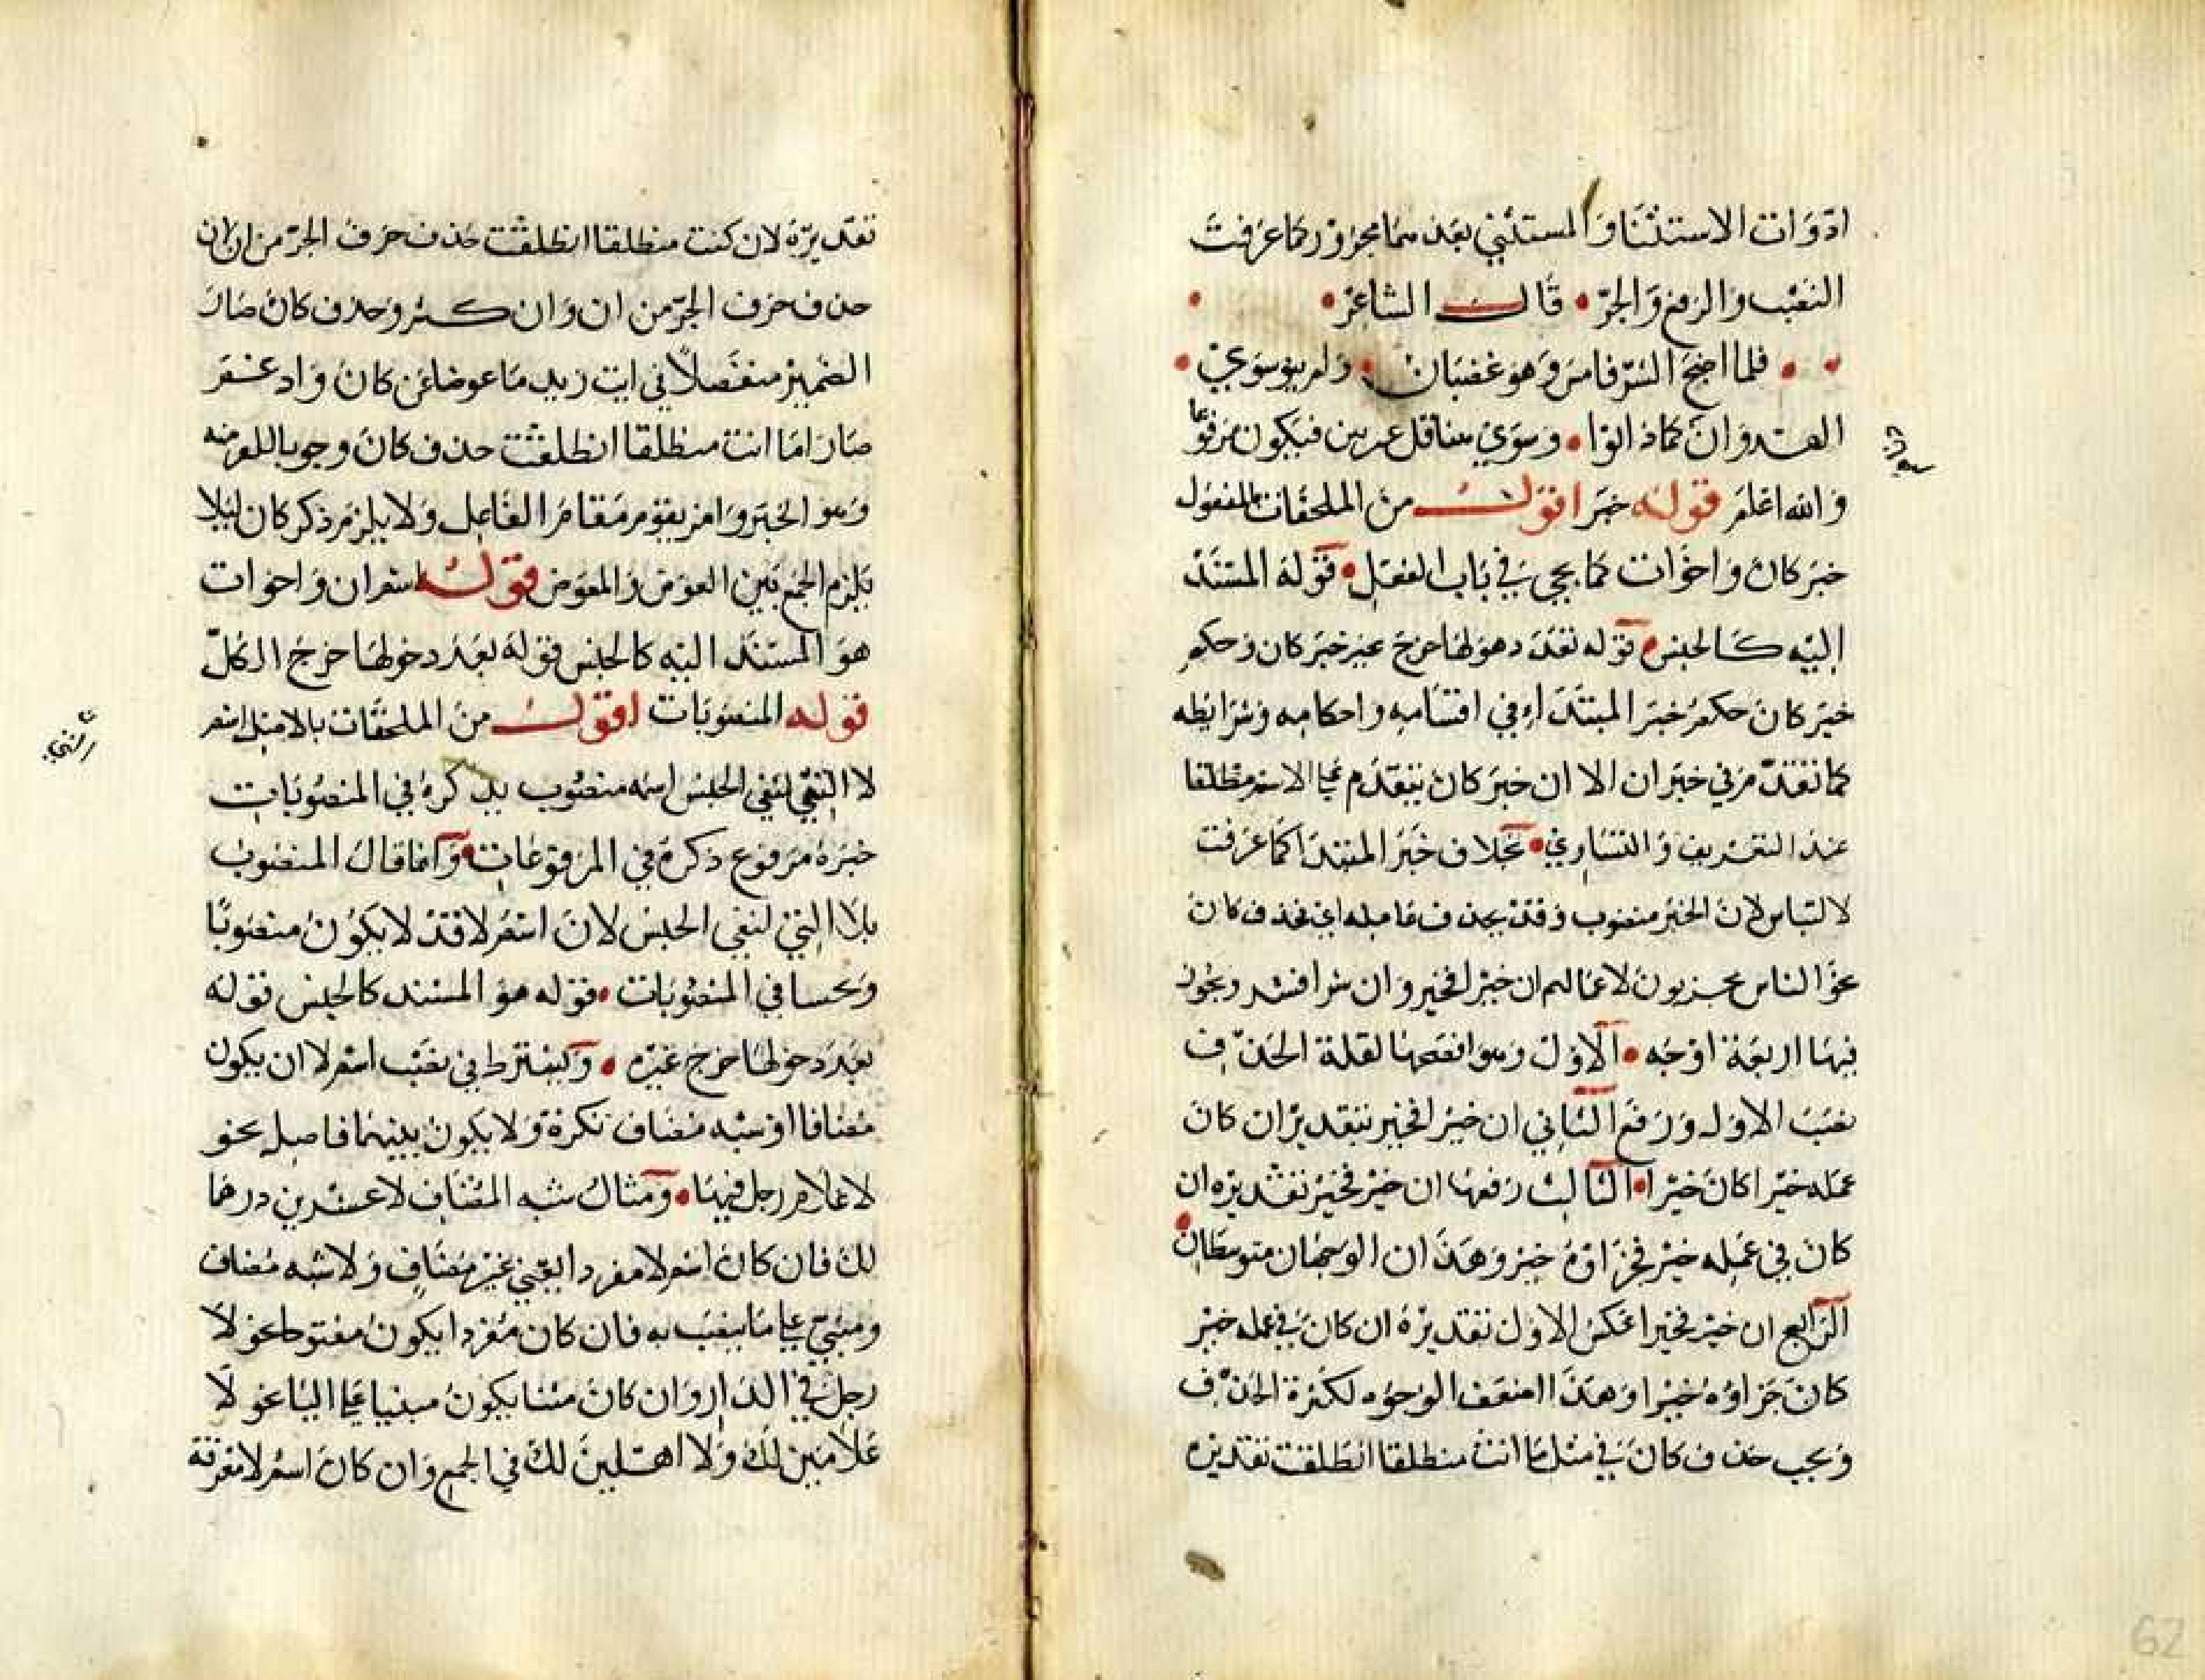 ادوات الاستثنا والمستثني بعدهما مجرور كما عرفت
النصب والرفع والجر قال الشاعر
فلما اضح الشر فامس وهو غضبان ولم يبق سوي
العدوان كما دانوا وسوي هنا فيكون مرفوعا
والله اعلم قوله خبر اقول من الملحقات بالمفعول
خبر كان واخوات كما يجي في باب الفعل قوله المسند
اليه كالجنس قوله بعد دخولها خرج غير خبر كان وحكم
خبر كان حكم خبر المبتدا في اقسامه واحكامه وشرايطه
كما تقدم في خبر ان الا ان خبر كان يتقدم علي الاسم مطلقا
عند التعريف والتساوي بخلاف خبر المبتدا كما عرفت
لالتباس لان الخبر منصوب وقد يحذف عامله اي يحذف كان
نحو الناس مجزيون لاعمالهم ان خيرا فخير وان شرا فشر ويجوز
فيها اربعة اوجه الاول وهو افصحها لقلة الحذف
نصب الاول ورفع الثاني ان خيرا فخير بتقدير ان كان
عمله خيرا كان خيرا الثالث رفعها ان خير فخير تقديره ان
كان في عمله خير فجزاوه خير وهذان الوجهان متوسطان
الرابع ان خير فخيرا عكس الاول تقديره ان كان في عمله خير
كان جزاوه خيرا وهذا اضعف الوجوه لكثرة الحذف
ويجب حذف كان في مثل اما انت منطلقا انطلقت تقديره
تقديره لان كنت منطلقا انطلقت حذف حرف الجر من ان لان
حذف حرف الجر من ان وان كثر وحذف كان صار
الضمير منفصلا في ات زيد ما عوضا عن كان وادغم
صار اما انت منطلقا انطلقت حذف كان وجوبا
وهو الخبر وامر يقوم مقام الفاعل ولا يلزم ذكر كان ليلا
يلزم الجمع بين العوض والمعوض قوله اسم ان واخوات
هو المسند اليه كالجنس قوله بعد دخولها خرج الكل
قوله المنصوبات اقول من الملحقات بالامثل اسم
لا التي لنفي الجنس اسمه منصوب يذكره في المنصوبات
خبره مرفوع ذكره في المرفوعات وانما قال المنصوب
بلا التي لنفي الجنس لان اسم لا قد لا يكون منصوبا
وبحسا في المنصوبات قوله هو المسند كالجنس قوله
بعد دخولها خرج غيره ويشترط في نصب اسم لا ان يكون
مضافا او شبه مضاف نكرة ولا يكون بينهما فاصل نحو
لا غلام رجل فيها ومثال شبه المضاف لا عشرين درهما
لك فان كان اسم لا مفردا يعني غير مضاف ولا شبه مضاف
ومبني علي ما ينصب به فان كان مفردا يكون مفتوحا نحو لا
رجل في الدار وان كان مثنا يكون مبنيا علي اليا نحو لا
غلامين لك ولا اهلين لك في الجمع وان كان اسم لا معرفة